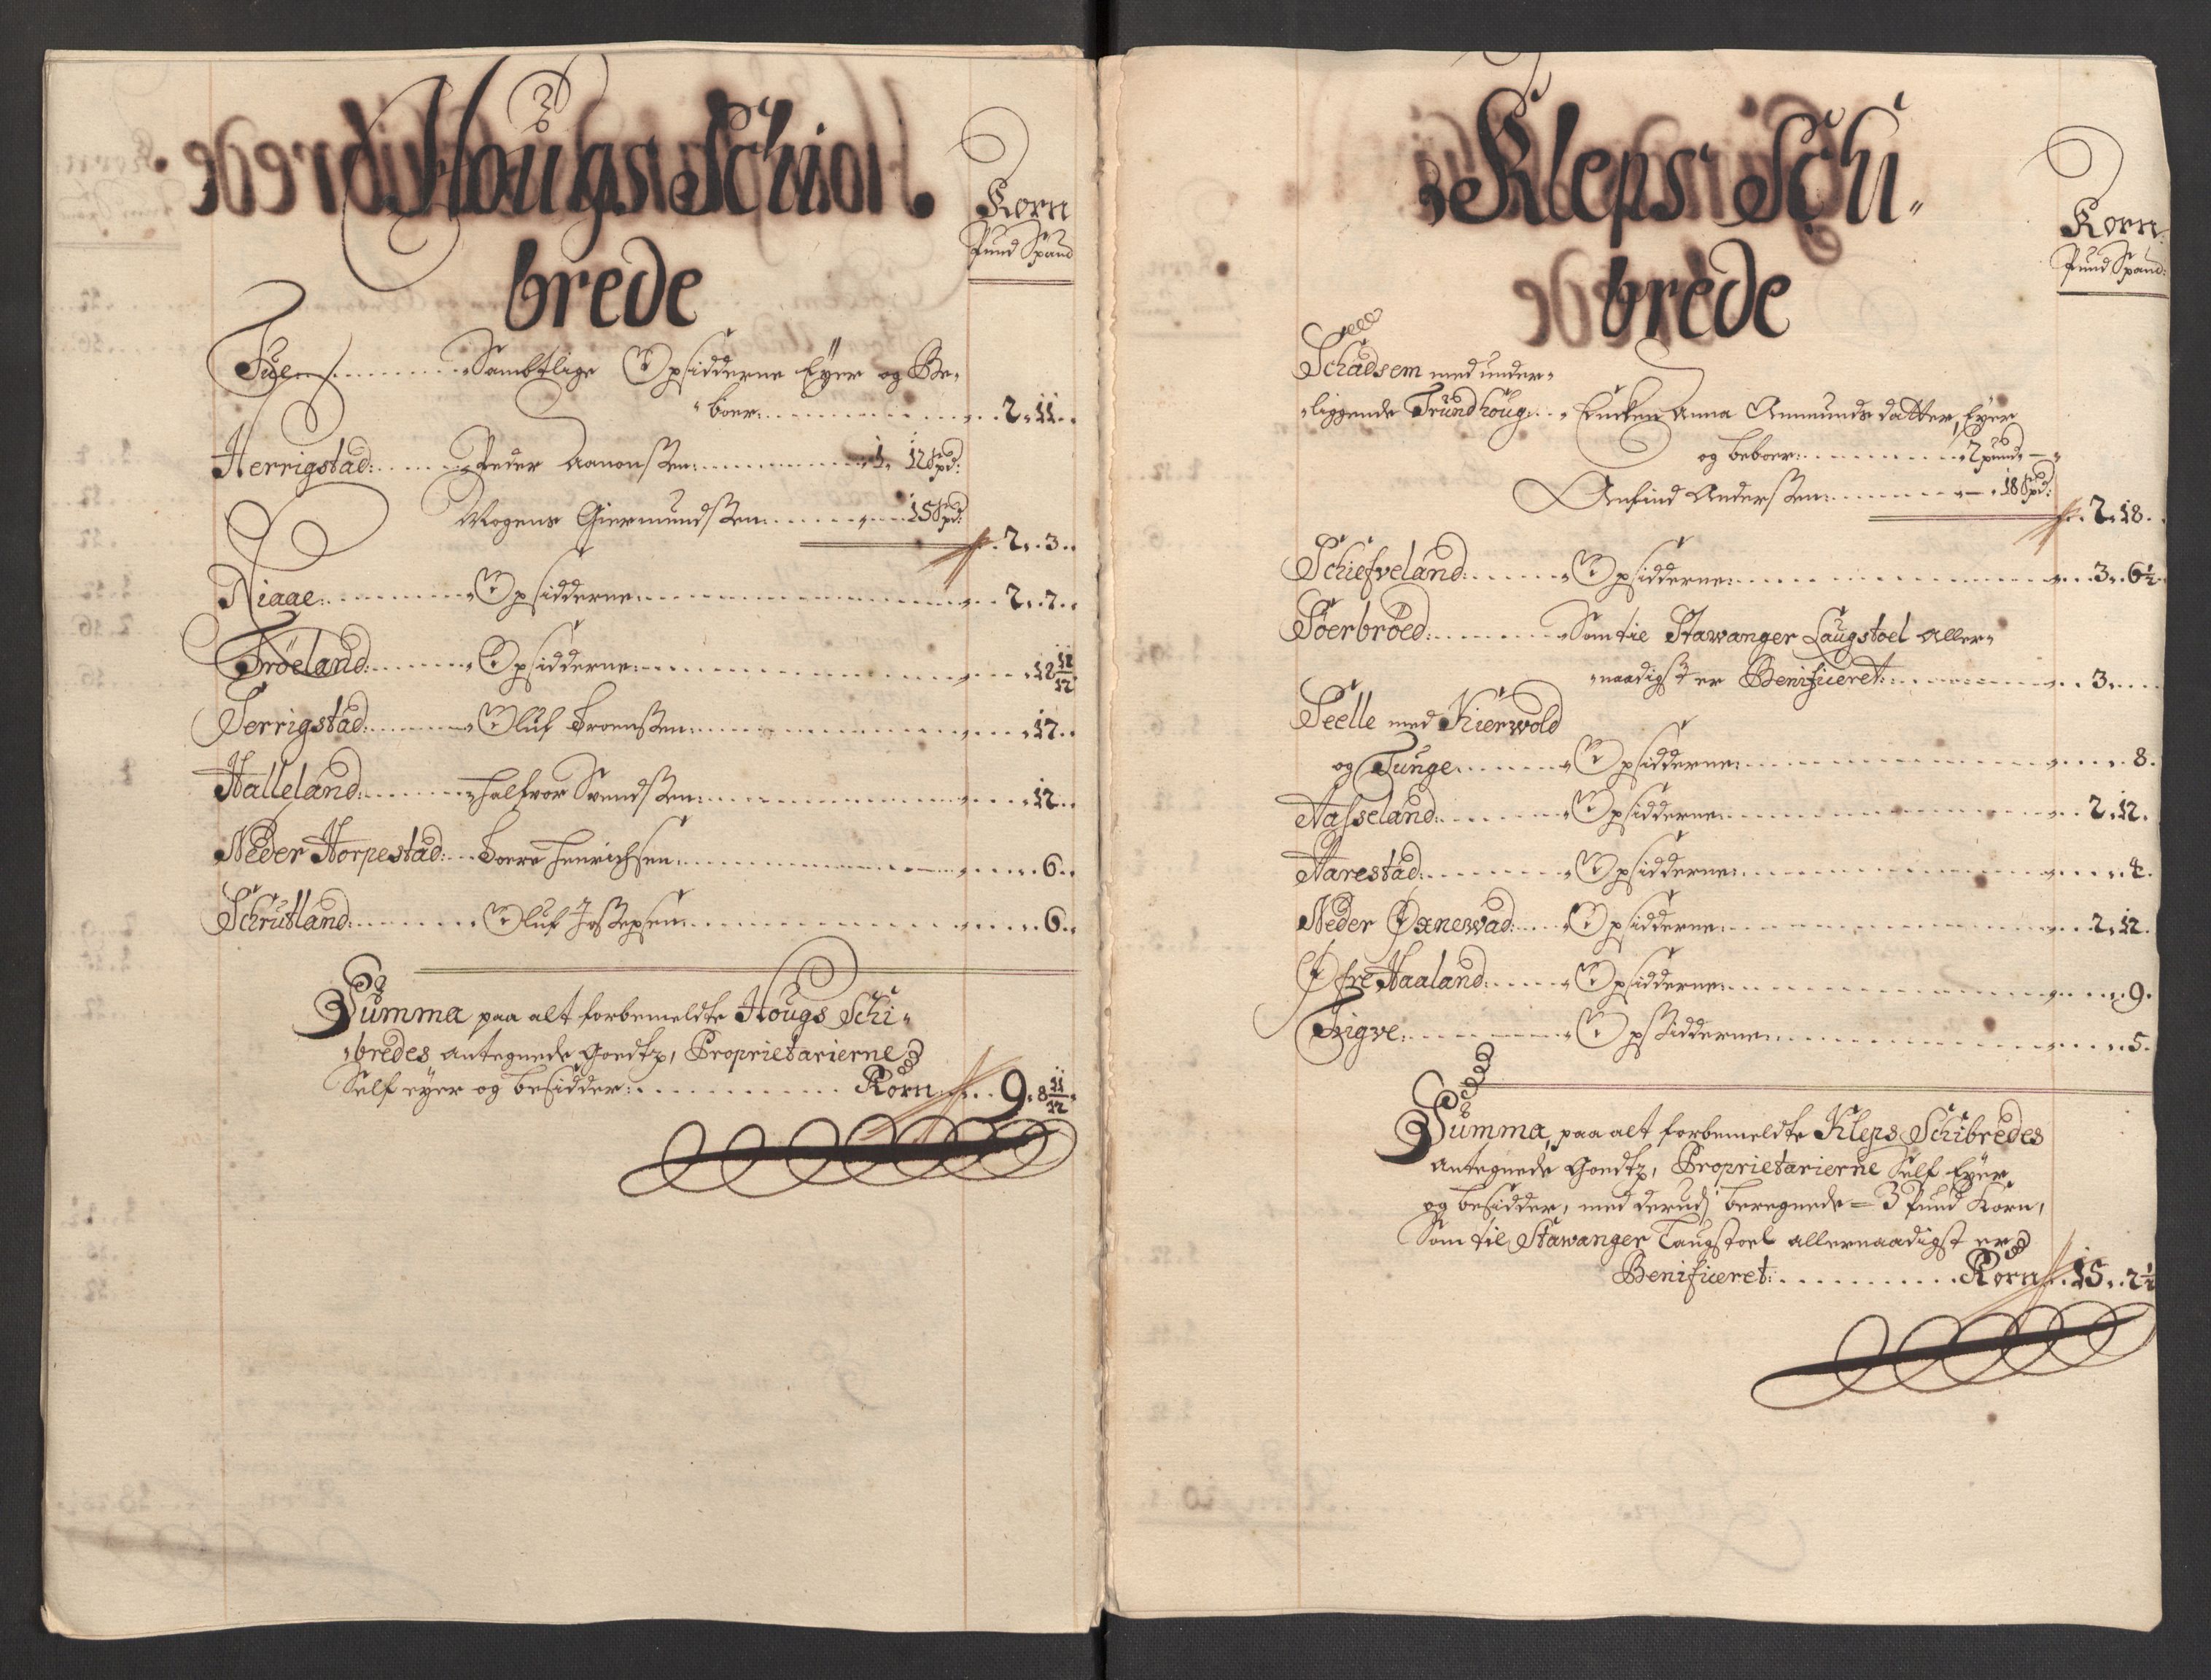 Hougs Schi
brede
Korn
Pund Spand
Tue. Samblige Opsidderne Eyer og Be-
boer. 2. 11.
Herrigstad: Peder Aanonssen 1. 12 Spd:
Mogens Giermundssen 15 Spd:
2. 3.
Niaae: Opsidderne 2. 7.
Frøeland: Opsidderne 18 11/12
Serrigstad: Oluf 17.
Halleland: Halfvor Svendssen 12.
Neder Horpestad: Toere Henrichsen 6.
Schrutland: Oluf Jossepsen 6.
Summa paa alt forbemeldte Hougs Schi-
bredes antegnede Goedtz, Proprietarierne
Self eyer og besidder: Korn. 9. 8 11/12
Kleps Schi-
brede
Korn:
Pund Spand:
Schadsem med under-
liggende Trundhoug. Encken Anna Anmunds datter, Eyer
og beboer: 2 pund -
Anfind Anderssen: - 18 Spd:
2. 18.
Schiefveland: Opsidderne: 3. 6½
Søerbrøed: Som til Stawanger Laugstoel Aller-
naadigst er Benificeret: 3.
Seelle med Kierwold
og Tunge. Opsidderne: 8.
Aasseland: Opsidderne: 2. 12.
Aarestad: Opsidderne: 4.
Neder Øxnewad: Opsidderne: 2. 12.
Øfre Haaland: Opsidderne: 9.
Trigve: Opsidderne: 5.
Summa, paa alt forbemeldte Kleps Schibredes
antegnede Goedtz, Proprietarierne Self Eyer
og besidder, med derudj beregnede = 3 Pund Korn,
Som til Stawanger Laugstoel allernaadigst er
Benificeret: Korn. 15. 2½